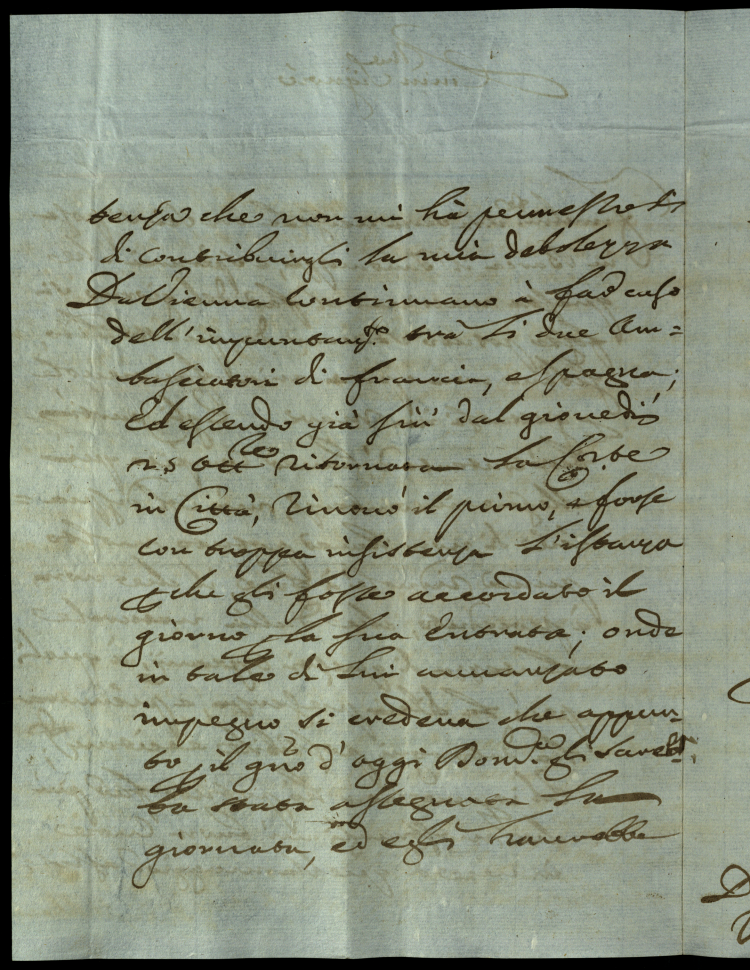 tenza che non mi hà permesso di
di contribuirgli la mia debolezza
Da Vienna continuano à far caso
dell'impuntam.to trà li due Am=
basciatori di francia, e spagna;
Ed essendo già sin dal giovedi
25 ott.re ritornata la Corte
in Città, rinovò il primo, e forse
con troppa insistenza l'istanza
che gli fosse accordato il
giorno la sua Entrata; onde
in tale di lui avanzato
impegno si credeva che appun=
to il gno d'oggi Dom.ca gli sareb=
ba stata assegnata la
giornata, ed egli havrebbe